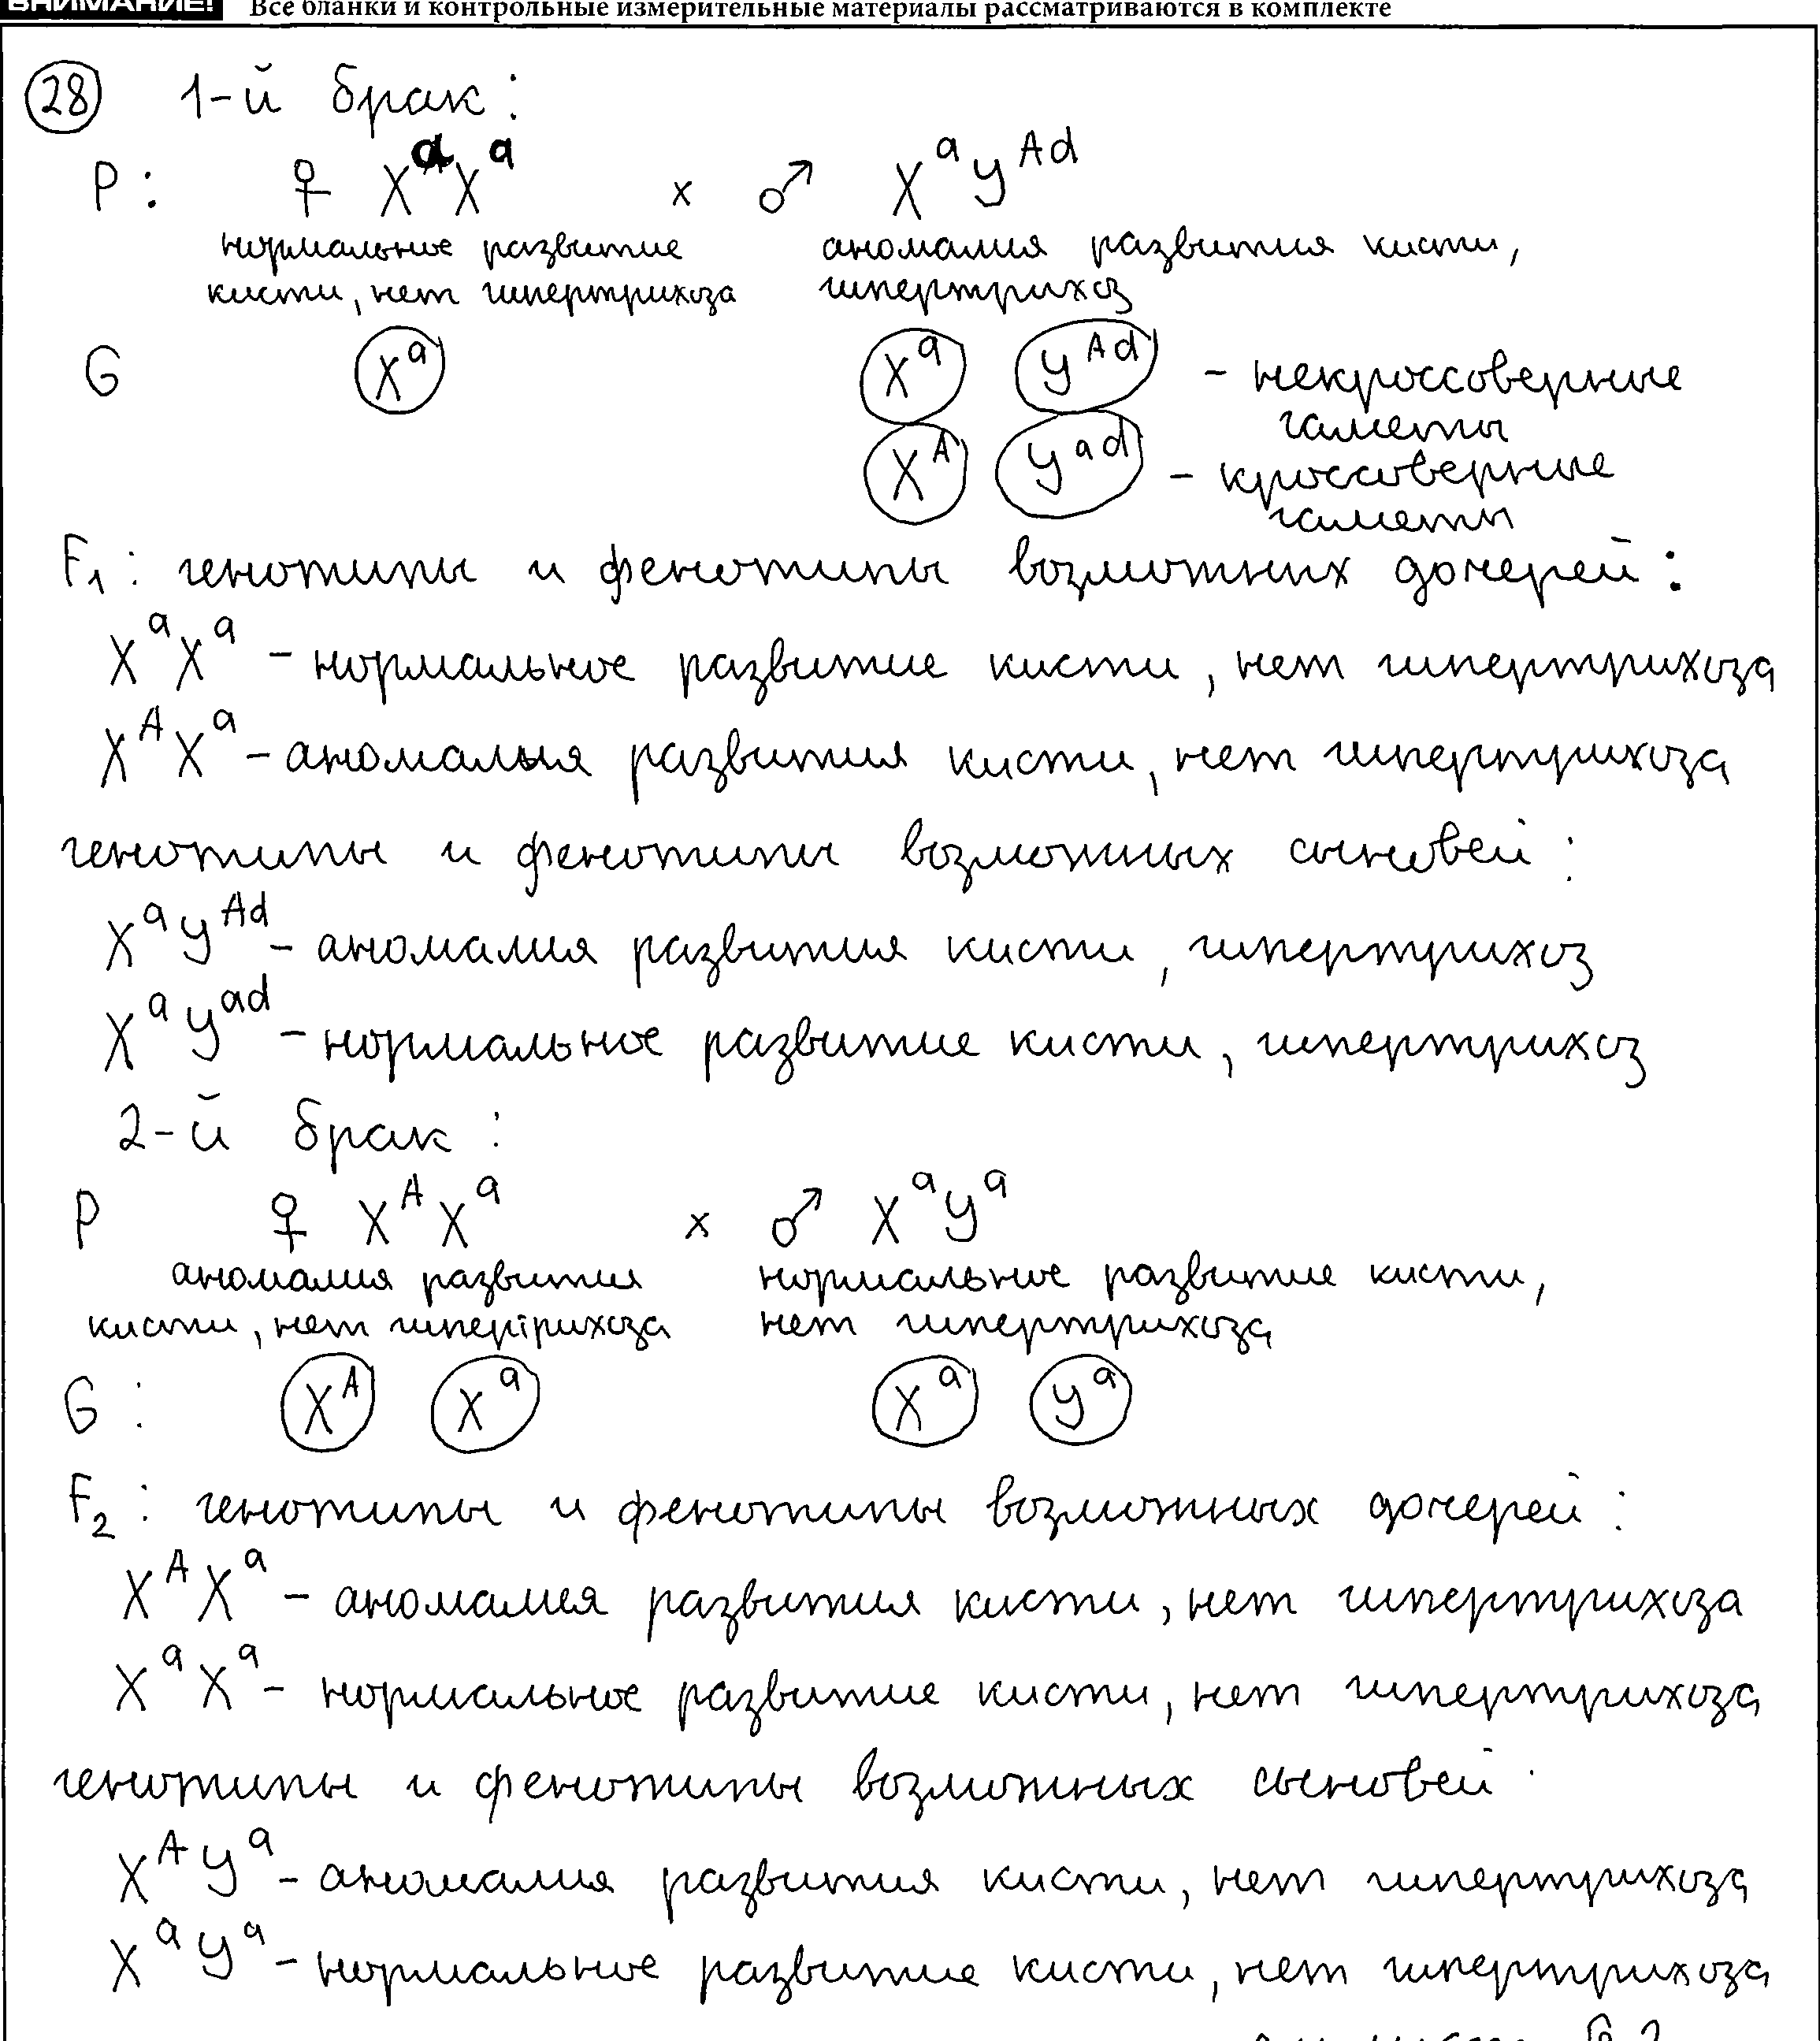 ВНИМАНИЕ! Все бланки и контрольные измерительные материалы рассматриваются в комплекте
28 1-й брак:
P: ♀ XᵃXᵃ × ♂ XᵃYᴬᵈ
нормальное развитие аномалия развития кисти,
кисти, нет гипертрихоза гипертрихоз
G Xᵃ Xᵃ Yᴬᵈ - некроссоверные
гаметы
Xᴬ Yᵃᵈ - кроссоверные
гаметы
F₁: генотипы и фенотипы возможных дочерей:
XᵃXᵃ - нормальное развитие кисти, нет гипертрихоза
XᴬXᵃ - аномалия развития кисти, нет гипертрихоза
генотипы и фенотипы возможных сыновей:
XᵃYᴬᵈ - аномалия развития кисти, гипертрихоз
XᵃYᵃᵈ - нормальное развитие кисти, гипертрихоз
2-й брак:
P ♀ XᴬXᵃ × ♂ XᵃYᵃ
аномалия развития нормальное развитие кисти,
кисти, нет гипертрихоза нет гипертрихоза
G: Xᴬ Xᵃ Xᵃ Yᵃ
F₂: генотипы и фенотипы возможных дочерей:
XᴬXᵃ - аномалия развития кисти, нет гипертрихоза
XᵃXᵃ - нормальное развитие кисти, нет гипертрихоза
генотипы и фенотипы возможных сыновей
XᴬYᵃ - аномалия развития кисти, нет гипертрихоза
XᵃYᵃ - нормальное развитие кисти, нет гипертрихоза